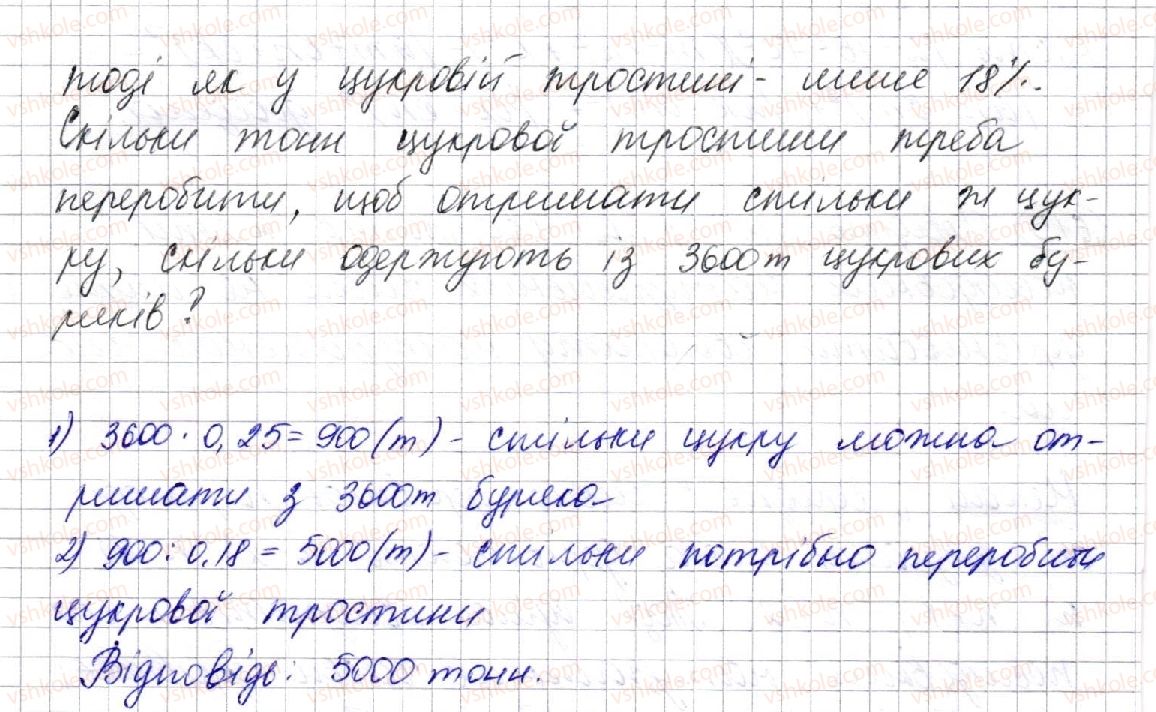 тоді як у цукровій тростині - лише 18%.
Скільки тонн цукрової тростини треба
переробити, щоб отримати стільки ж цук-
ру, скільки одержують із 3600т цукрових бу-
ряків?
1) 3600 · 0,25 = 900 (т) - стільки цукру можна от-
римати з 3600т буряка
2) 900 : 0,18 = 5000 (т) - стільки потрібно переробити
цукрової тростини
Відповідь: 5000 тонн.